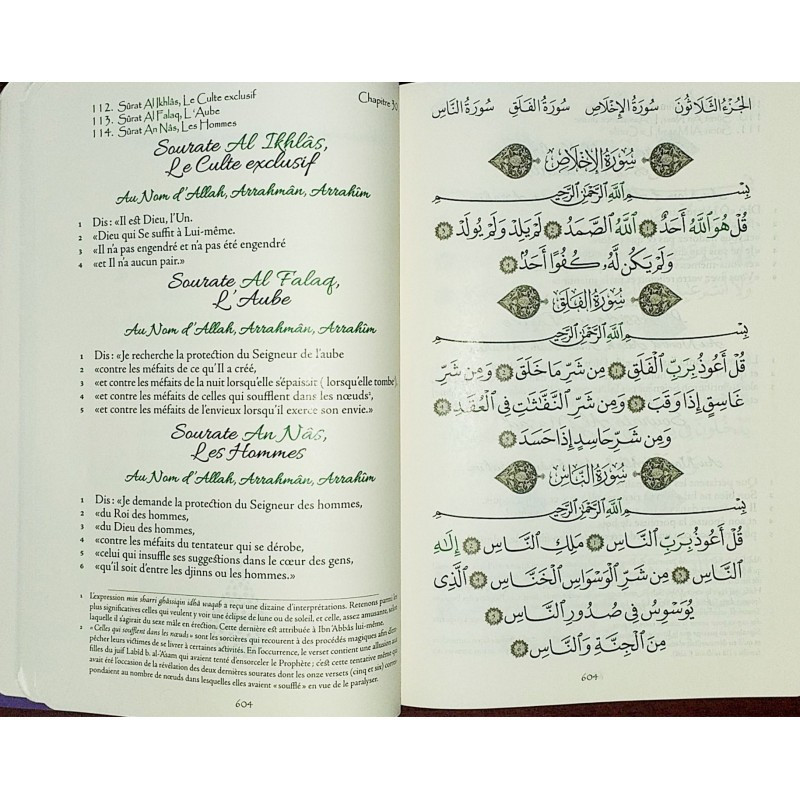 112. Sûrat Al Ikhlâs, Le Culte exclusif
113. Sûrat Al Falaq, L'Aube
114. Sûrat An Nâs, Les Hommes
Chapitre 30
Sourate Al Ikhlâs,
Le Culte exclusif
Au Nom d'Allah, Arrahmân, Arrahîm
1 Dis : «Il est Dieu, l'Un.
2 «Dieu qui Se suffit à Lui-même.
3 «Il n'a pas engendré et n'a pas été engendré
4 «et Il n'a aucun pair.»
Sourate Al Falaq,
L'Aube
Au Nom d'Allah, Arrahmân, Arrahîm
1 Dis : «Je recherche la protection du Seigneur de l'aube
2 «contre les méfaits de ce qu'Il a créé,
3 «et contre les méfaits de la nuit lorsqu'elle s'épaissit ( lorsqu'elle tombe¹),
4 «et contre les méfaits de celles qui soufflent dans les nœuds²,
5 «et contre les méfaits de l'envieux lorsqu'il exerce son envie.»
Sourate An Nâs,
Les Hommes
Au Nom d'Allah, Arrahmân, Arrahîm
1 Dis : «Je demande la protection du Seigneur des hommes,
2 «du Roi des hommes,
3 «du Dieu des hommes,
4 «contre les méfaits du tentateur qui se dérobe,
5 «celui qui insuffle ses suggestions dans le cœur des gens,
6 «qu'il soit d'entre les djinns ou les hommes.»
1 L'expression min sharri ghâssiqin idhâ waqab a reçu une dizaine d'interprétations. Retenons parmi les
plus significatives celles qui veulent y voir une éclipse de lune ou de soleil, et celle, assez amusante, selon
laquelle il s'agirait du sexe mâle en érection. Cette dernière est attribuée à Ibn 'Abbâs lui-même.
2 « Celles qui soufflent dans les nœuds » sont les sorcières qui recourent à des procédés magiques afin d'em-
pêcher leurs victimes de se livrer à certaines activités. En l'occurrence, le verset contient une allusion aux
filles du juif Labîd b. al-'Aṣam qui avaient tenté d'ensorceler le Prophète ; c'est cette tentative même qui
avait été l'occasion de la révélation des deux dernières sourates dont les onze versets (cinq et six) corres-
pondaient au nombre de nœuds dans lesquelles elles avaient « soufflé » en vue de le paralyser.
604
الجُزْءُ الثَّلَاثُونَ سُورَةُ الإِخْلَاصِ سُورَةُ الفَلَقِ سُورَةُ النَّاسِ
سُورَةُ الإِخْلَاصِ
بِسْمِ اللَّهِ الرَّحْمَٰنِ الرَّحِيمِ
قُلْ هُوَ ٱللَّهُ أَحَدٌ ١ ٱللَّهُ ٱلصَّمَدُ ٢ لَمْ يَلِدْ وَلَمْ يُولَدْ ٣
وَلَمْ يَكُن لَّهُۥ كُفُوًا أَحَدٌۢ ٤
سُورَةُ الفَلَقِ
بِسْمِ اللَّهِ الرَّحْمَٰنِ الرَّحِيمِ
قُلْ أَعُوذُ بِرَبِّ ٱلْفَلَقِ ١ مِن شَرِّ مَا خَلَقَ ٢ وَمِن شَرِّ
غَاسِقٍ إِذَا وَقَبَ ٣ وَمِن شَرِّ ٱلنَّفَّٰثَٰتِ فِى ٱلْعُقَدِ ٤
وَمِن شَرِّ حَاسِدٍ إِذَا حَسَدَ ٥
سُورَةُ النَّاسِ
بِسْمِ اللَّهِ الرَّحْمَٰنِ الرَّحِيمِ
قُلْ أَعُوذُ بِرَبِّ ٱلنَّاسِ ١ مَلِكِ ٱلنَّاسِ ٢ إِلَٰهِ
ٱلنَّاسِ ٣ مِن شَرِّ ٱلْوَسْوَاسِ ٱلْخَنَّاسِ ٤ ٱلَّذِى
يُوَسْوِسُ فِى صُدُورِ ٱلنَّاسِ ٥
مِنَ ٱلْجِنَّةِ وَٱلنَّاسِ ٦
604